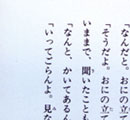 「なんだと。おにの立て
「そうだよ。おにの立て
いままで、聞いたことも
「なんと、かいてあるん
「いってごらんよ。見な